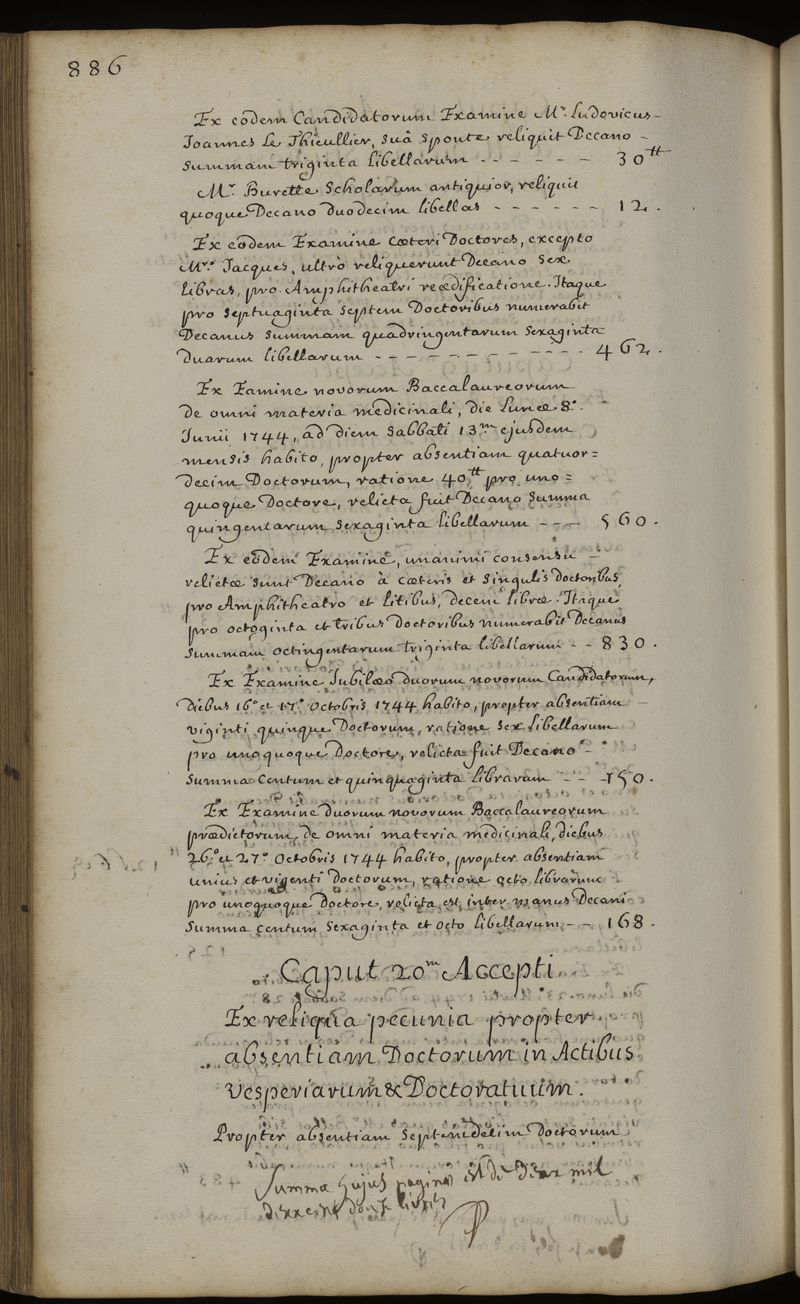 886
Ex eodem Candidatorum Examine Mr. Ludovicus-
Joannes Le Thieullier, suâ sponte reliquit Decano -
summam triginta libellarum - - - - - - 30tt
Mr. Burette Scholarum antiquior, reliquit
quoque Decano duodecim libellas - - - - - - 12.
Ex eodem Examine cæteri Doctores, excepto
Mro. Jacques, ultrò reliquerunt Decano sex
libras, pro Amphitheatri reædificatione. Itaque
pro septuaginta septem Doctoribus numerabit
Decanus summam quadringentarum sexaginta
duarum libellarum - - - - - - - - - - - - 462.
Ex Examine novorum Baccalaureorum
de omni materia medicinali, die Lunæ 8a.
Junii 1744, ad diem Sabbati 13m ejusdem
mensis habito, propter absentiam quatuor=
decim Doctorum, ratione 40tt pro uno=
quoque Doctore, relicta fuit Decano summa
quingentarum sexaginta libellarum - - - 560.
Ex eodem Examine, unanimi consensu -
relictæ sunt Decano à cæteris et singulis doctoribus,
pro Amphitheatro et litibus, decem libræ. Itaque
pro octoginta et tribus doctoribus numerabit Decanus
summam octingentarum triginta libellarum - - 830.
Ex Examine Jubilæo duorum novorum Candidatorum,
diebus 16o et 17o. Octobris 1744 habito, propter absentiam
viginti quinque Doctorum, ratione sex libellarum
pro unoquoque Doctore, relicta fuit Decano -
summa centum et quinquaginta librarum - - 150.
Ex Examine duorum novorum Baccalaureorum
prædictorum, de omni materia medicinali, diebus
26o. et 27o. Octobris 1744 habito, propter absentiam
unius et viginti Doctorum, ratione octo librarum
pro unoquoque Doctore, relicta est inter manus Decani
summa centum sexaginta et octo libellarum - - 168.
Caput 20m Accepti
Ex reliqua pecunia propter
absentiam Doctorum in Actibus
Vesperiarum & Doctoratuum.
Propter absentiam septemdecim Doctorum
Summa hujus paginæ est de deux mil
deux cent douze livres